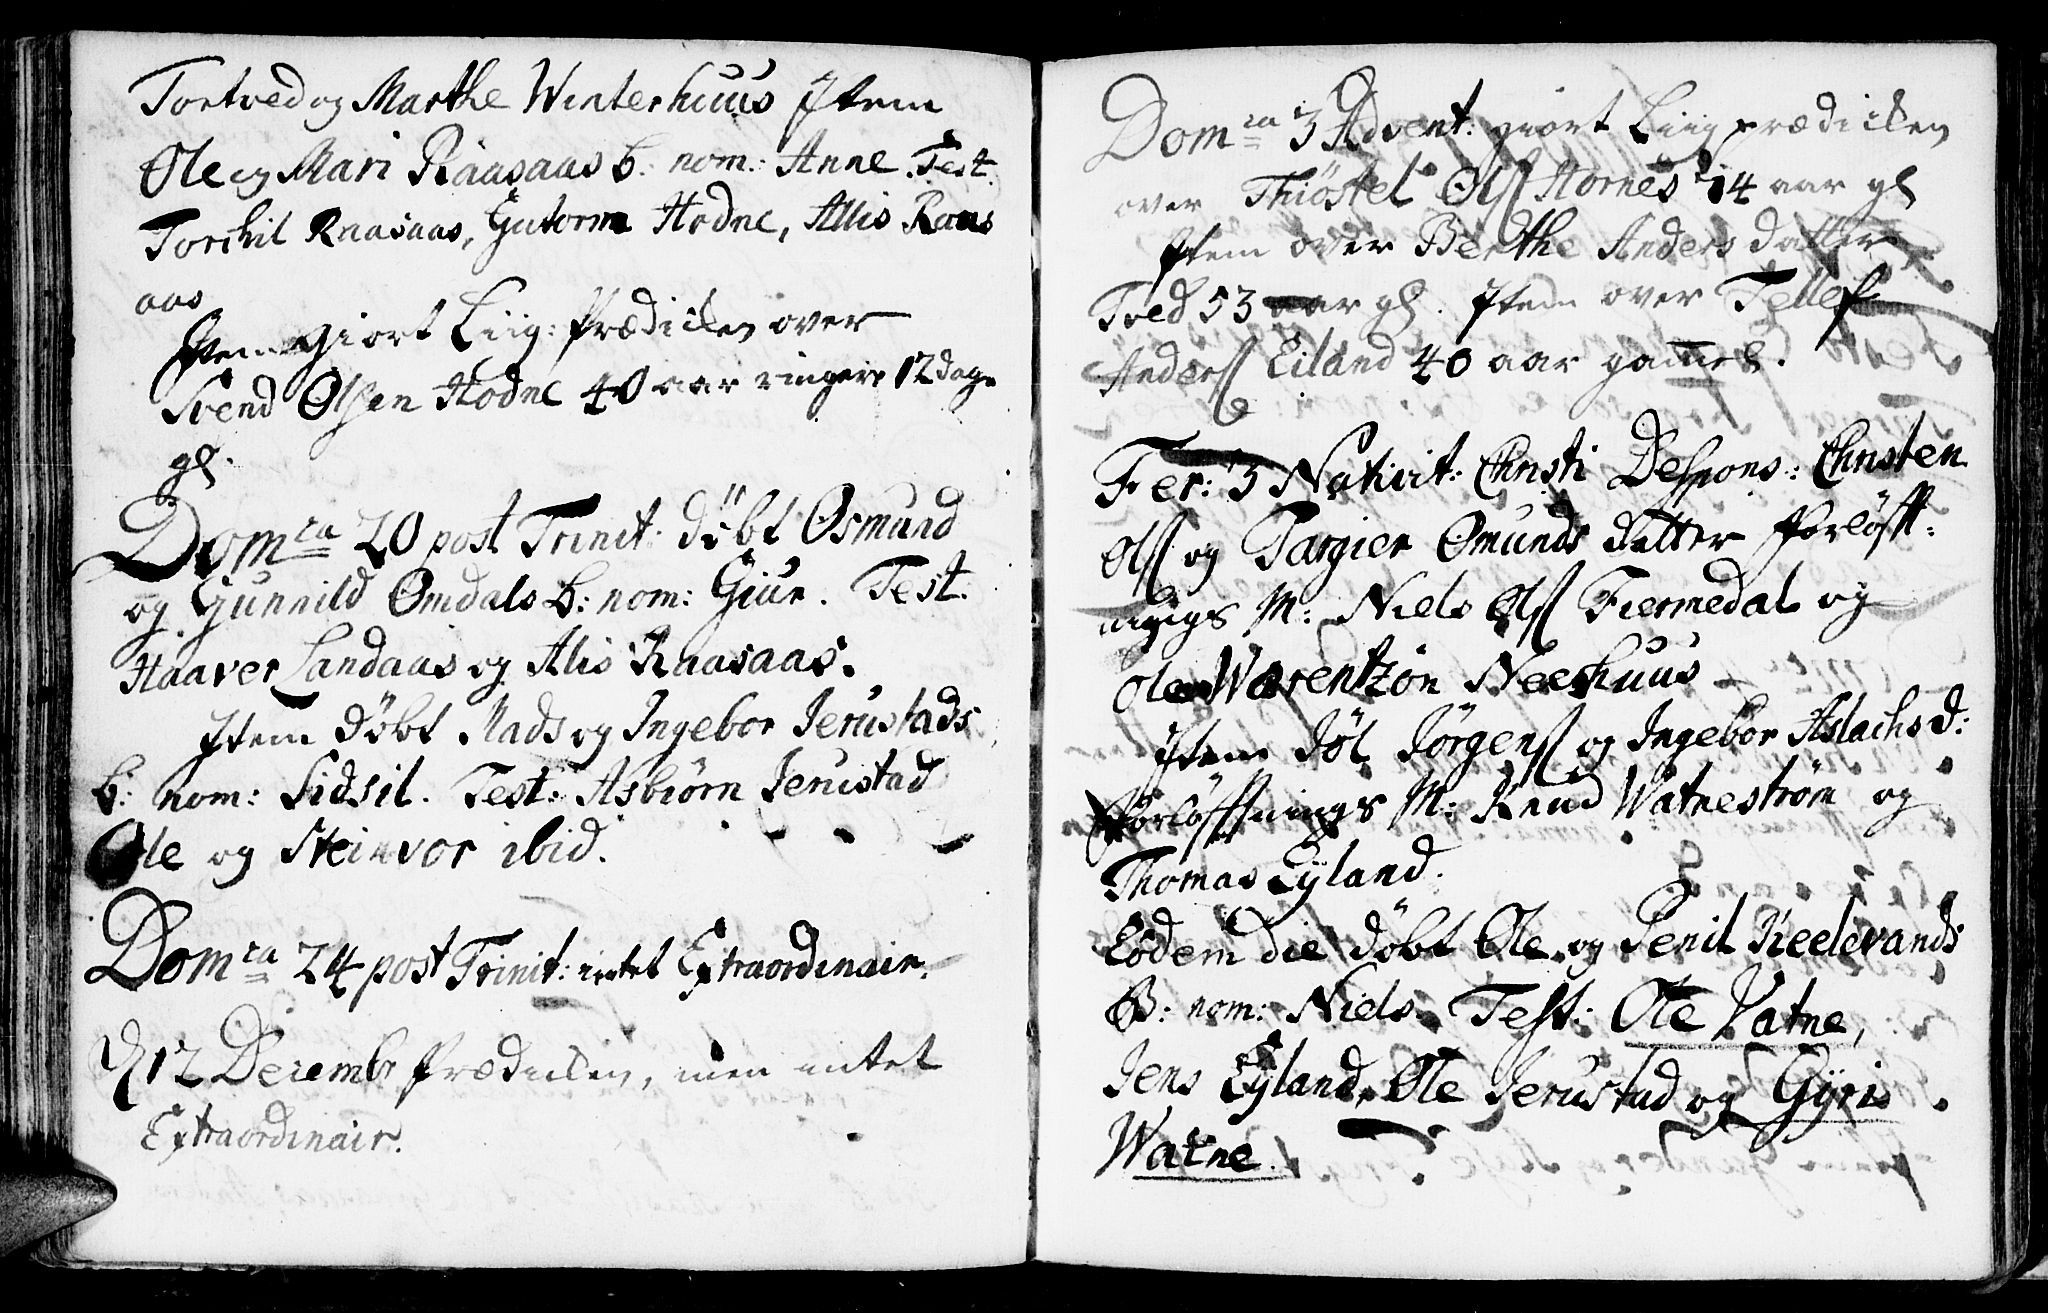 Tortved og Marthe Winterhuus Item
Ole og Mari Raasaas b: nom: Anne. Test.
Torchil Raasaas, Gutorm Hodne, Allis Raas
aas
Item giort Liig: Prædicken over
Svend Olsen Hodne 40 aar ringere 12 dage
gl.
Dom<sup>ca</sup> 20 post Trinit: døbt Osmund
og Gunnild Omdals b: nom: Giur. Test:
Haaver Landaas og Alis Raasaas.
Item døbt Mads og Ingebor Jerustads
b: nom: Sidsil. Test: Asbiørn Jerustad
Ole og Steinvor ibid.
Dom<sup>ca</sup> 24 post Trinit: intet Extraordinair.
D 12 Decembr Prædicken, men intet
Extraordinair.
Dom<sup>ca</sup> 3 Advent: giort Liigprædicken
over Thiöstel Ols Hornes 14 aar gl
Item over Berthe Anders datter
Tved 53 aar gl. Item over Tellef
Anders Eiland 40 aar gammel.
Fer: 3 Nativit: Christi Despons: Christen
Ols og Targier Omunds datter forløft-
nings M: Niels Ols Fiermedal og
Ole Worentzon Neehuus
Item Jøl Jørgens og Ingebor Aslachs d:
forløffnings M: Knud Watneström og
Thomas Eyland.
Eodem die døbt Ole og Penil Keelevands
B: nom: Niels. Test: Ole Vatne,
Jens Eyland, Ole Jerustad og Gyri
Watne.